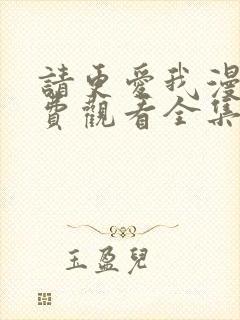 請更愛我漫
費觀看全集
玉盈兒